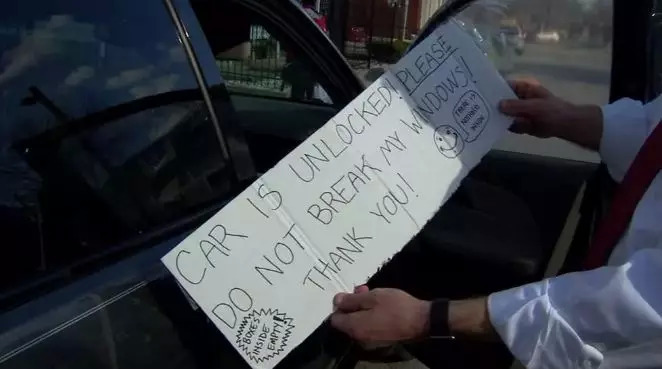 CAR IS UNLOCKED! PLEASE
DO NOT BREAK MY WINDOWS!
THANK YOU!
THERE IS
NOTHING
INSIDE
BOXES
INSIDE
EMPTY!